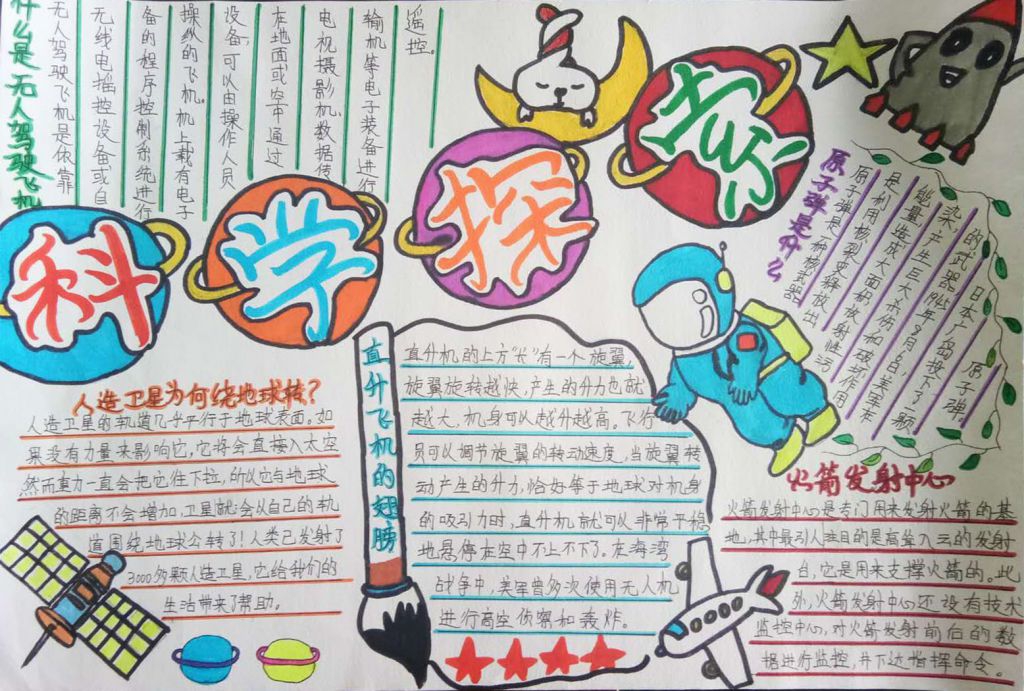 科学探索
什么是无人驾驶飞机
无人驾驶飞机是依靠
无线电摇控设备或自
备的程序控制系统进行
操纵的飞机。机上载有电子
设备,可以由操作人员
在地面或空中通过
电视摄影机、数据传
输机等电子装备进行
遥控。
原子弹是什么
原子弹是一种核武器
是利用核裂变释放出
能量,造成大面积放射性污
染,产生巨大杀伤和破坏作用
的武器。1945年8月6日美军在
日本广岛投下了一颗
原子弹,
人造卫星为何绕地球转?
人造卫星的轨道几乎平行于地球表面。如
果没有力量来影响它,它将会直接入太空
然而重力一直会把它往下拉,所以它与地球
的距离不会增加,卫星就会以自己的轨
道围绕地球公转了!人类已发射了
3000多颗人造卫星,它给我们的
生活带来了帮助。
直升飞机的翅膀
直升机的上方“长”有一个旋翼,
旋翼旋转越快,产生的升力也就
越大,机身可以越升越高。飞行
员可以调节旋翼的转动速度,当旋翼转
动产生的升力,恰好等于地球对机身
的吸引力时,直升机就可以非常平稳
地悬停在空中不上不下了。在海湾
战争中,美军曾多次使用无人机
进行高空侦察和轰炸。
火箭发射中心
火箭发射中心是专门用来发射火箭的基
地,其中最引人注目的是高耸入云的发射
台,它是用来支撑火箭的。此
外,火箭发射中心还设有技术
监控中心,对火箭发射前后的数
据进行监控,并下达指挥命令。